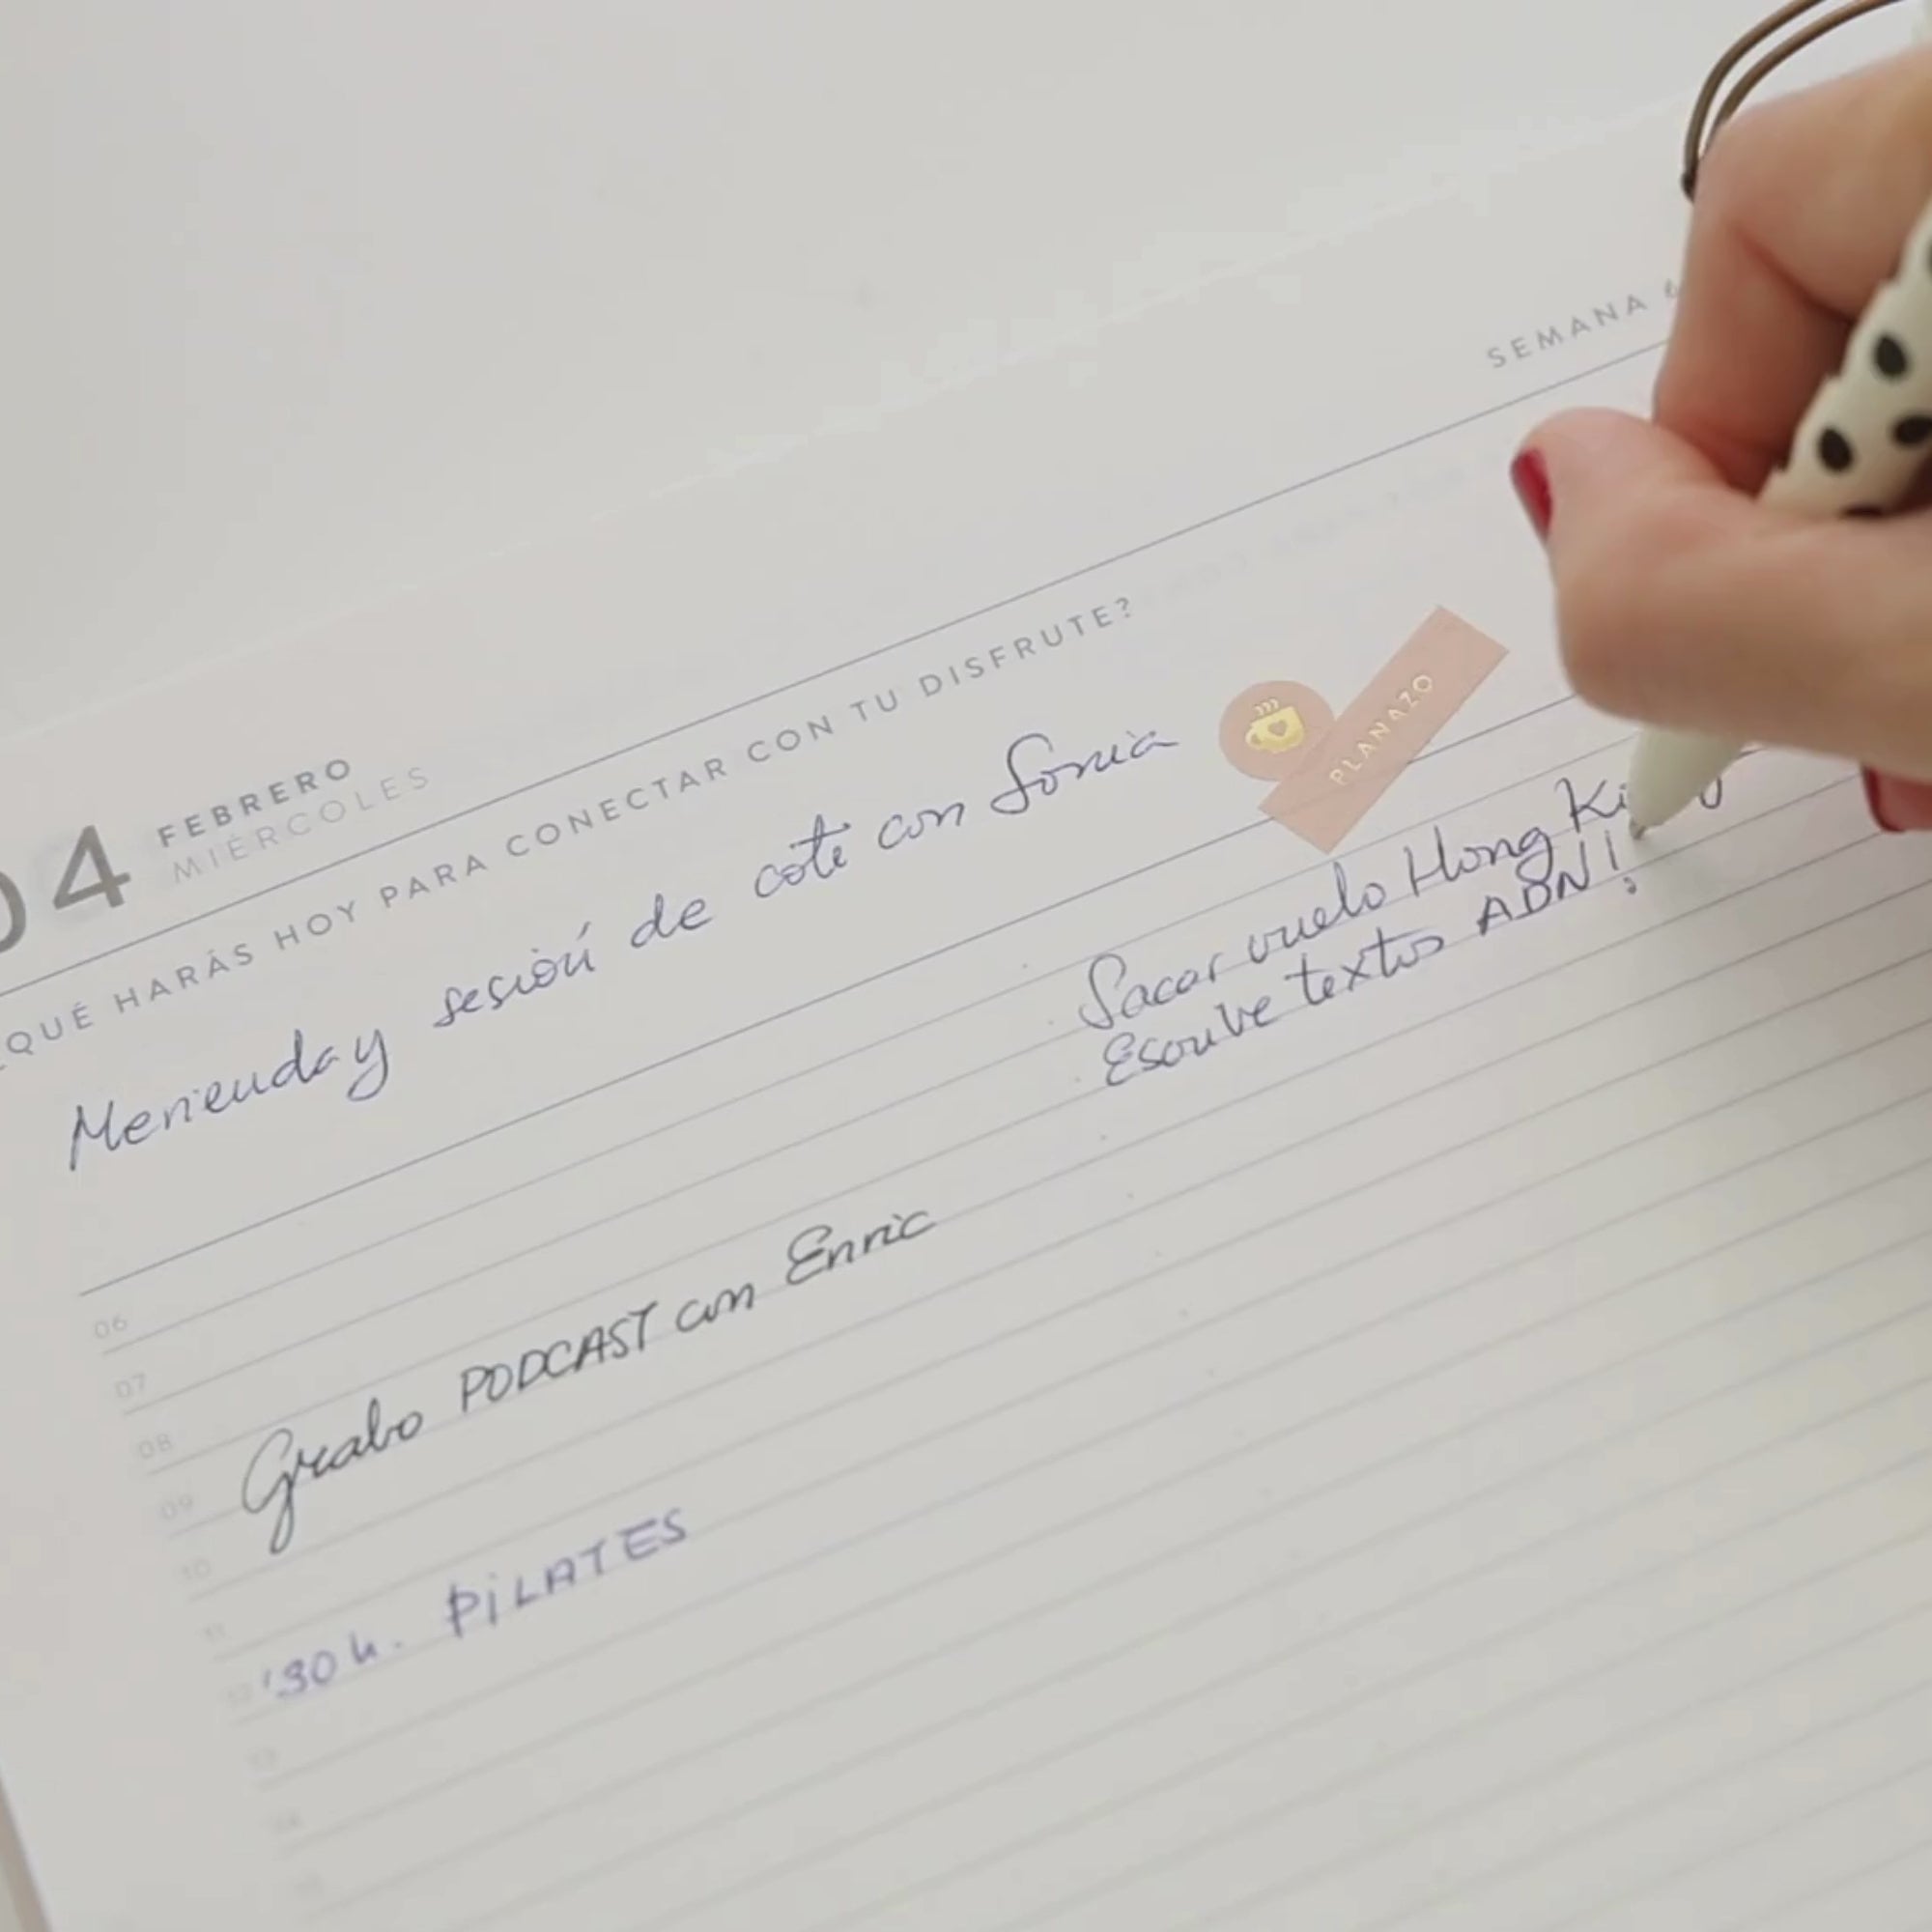 SEMANA 6
04 FEBRERO
MIÉRCOLES
¿QUÉ HARÁS HOY PARA CONECTAR CON TU DISFRUTE?
Merienda y sesión de cote con Sonia
PLANAZO
Sacar vuelo Hong
Escribe textos ADN!!
06
07
08
09 Grabo PODCAST con Enric
10
11
12 '30 h. PiLATES
13
14
15